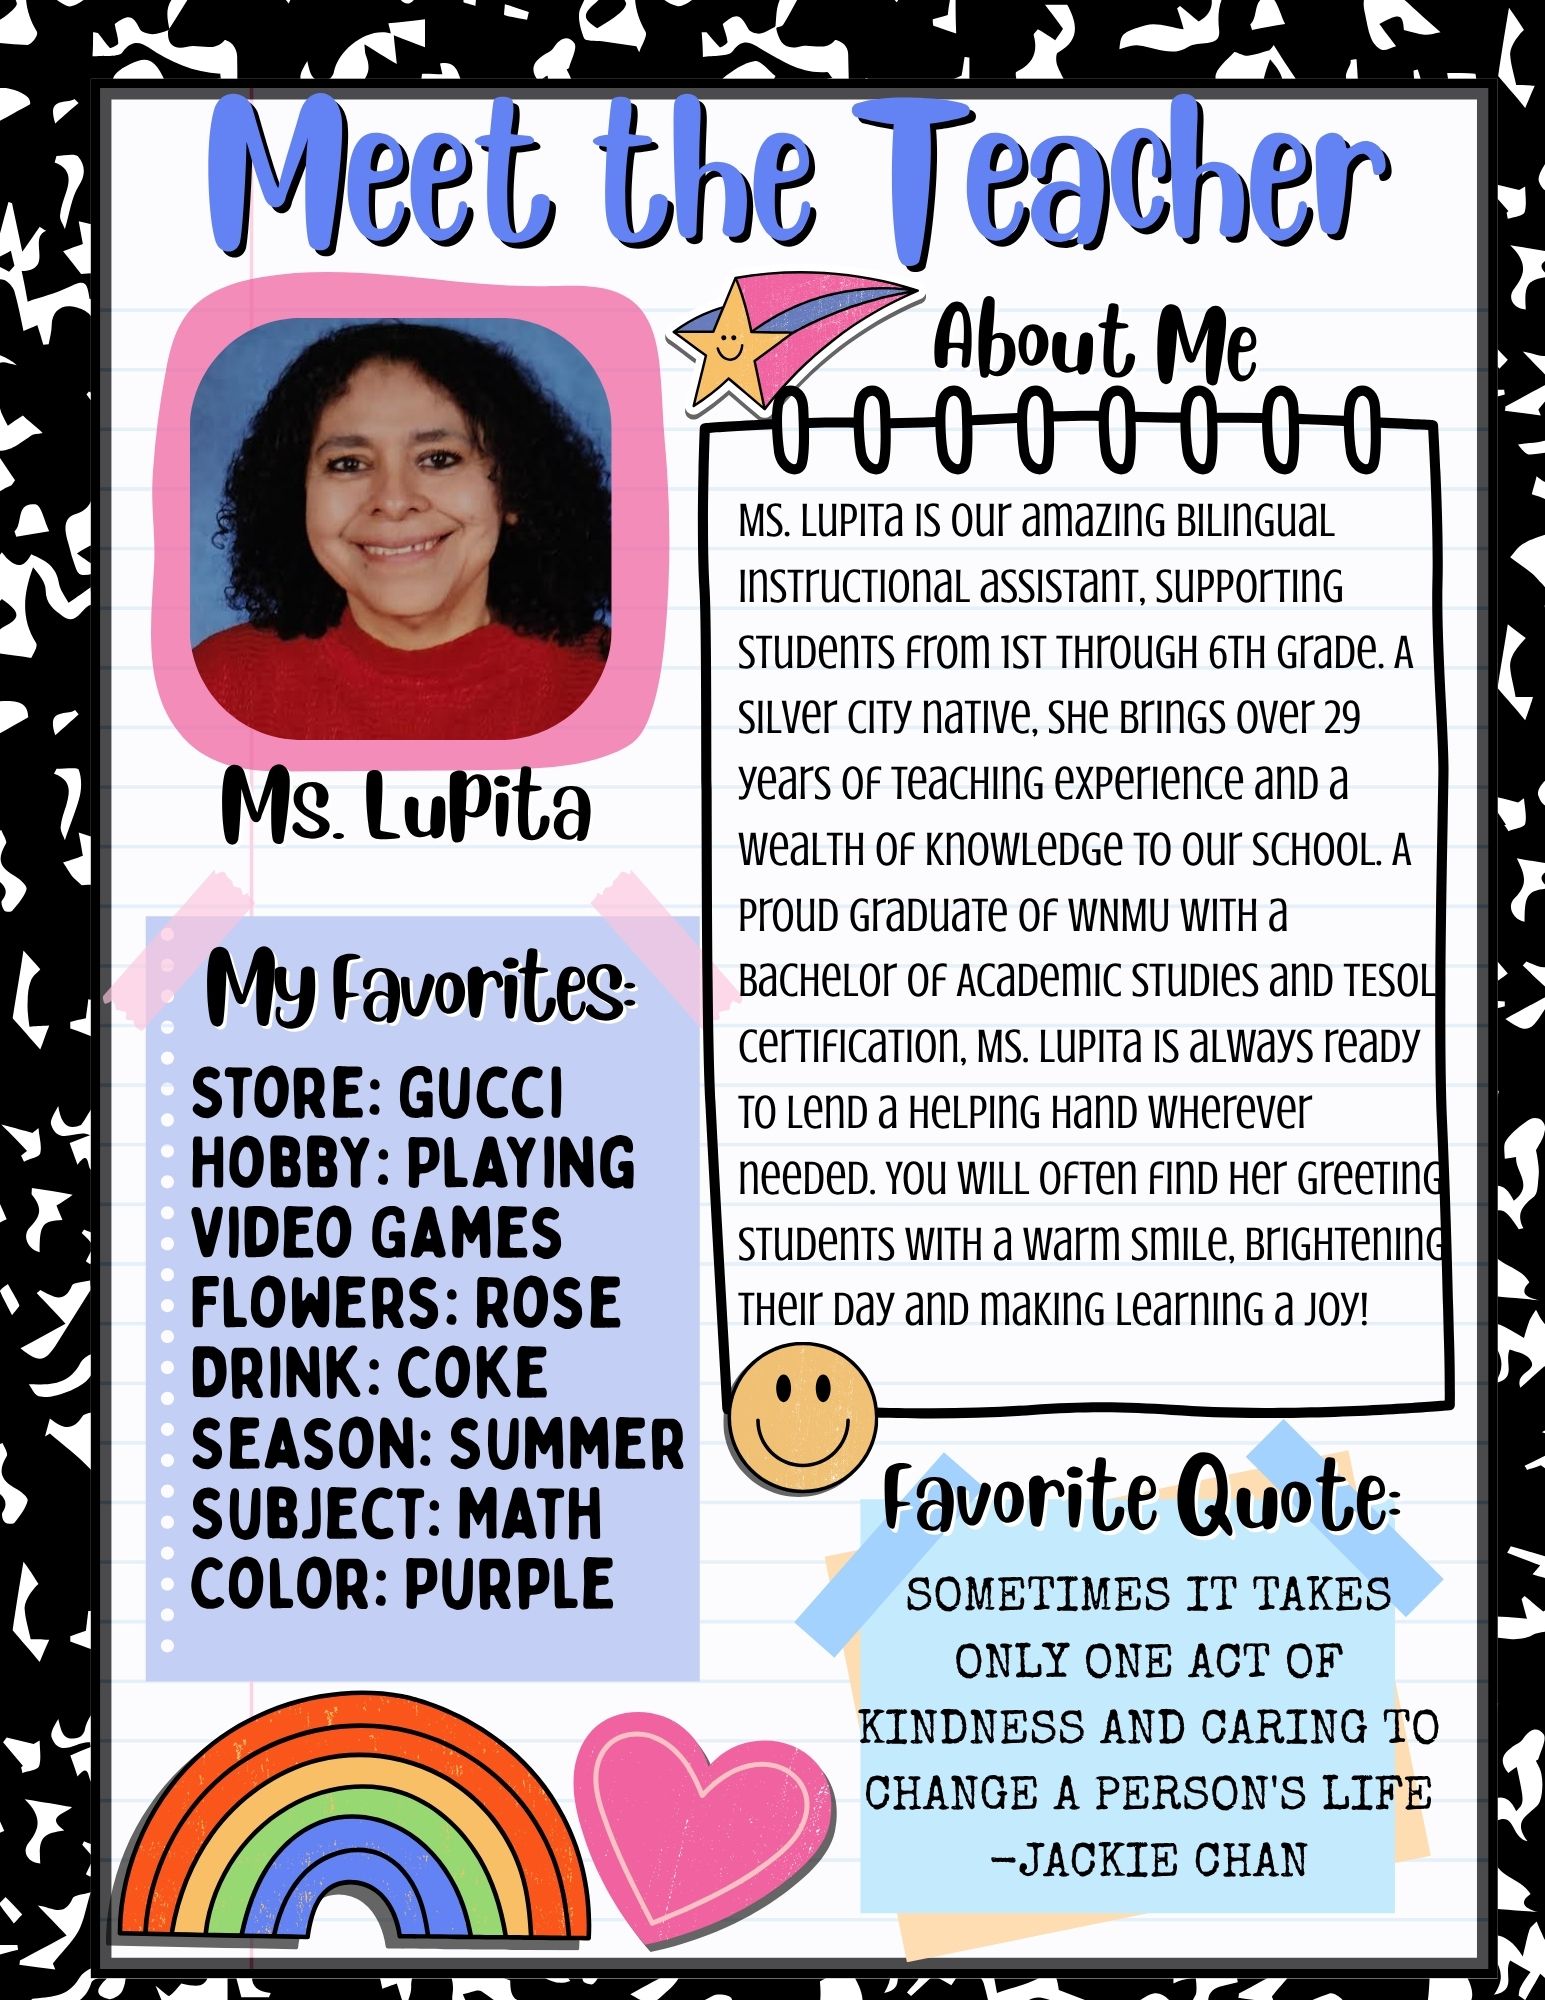 Meet the Teacher
Ms. Lupita
My Favorites:
STORE: GUCCI
HOBBY: PLAYING
VIDEO GAMES
FLOWERS: ROSE
DRINK: COKE
SEASON: SUMMER
SUBJECT: MATH
COLOR: PURPLE
About Me
Ms. Lupita is our amazing bilingual
instructional assistant, supporting
students from 1st through 6th grade. A
Silver City native, she brings over 29
years of teaching experience and a
wealth of knowledge to our school. A
proud graduate of WNMU with a
Bachelor of Academic Studies and TESOL
certification, Ms. Lupita is always ready
to lend a helping hand wherever
needed. You will often find her greeting
students with a warm smile, brightening
their day and making learning a joy!
Favorite Quote:
SOMETIMES IT TAKES
ONLY ONE ACT OF
KINDNESS AND CARING TO
CHANGE A PERSON'S LIFE
-JACKIE CHAN